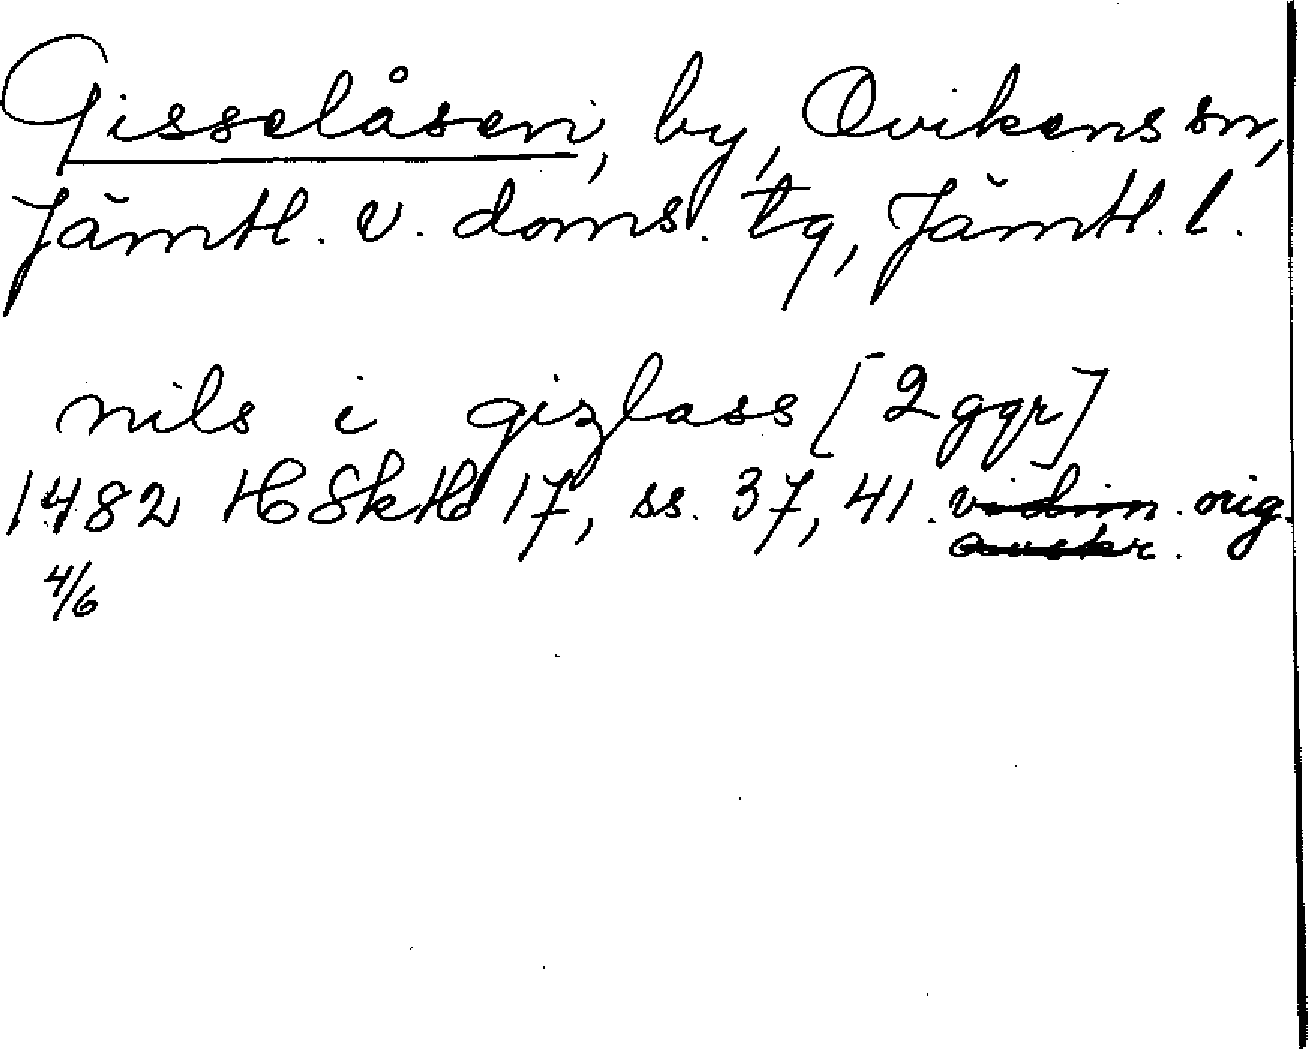 Gisselåsen, by, Ovikens sn,
Jämtl. v. doms. tg, Jämtl. l.
nils i gizlass [2 ggr]
1482 HSkH 17, ss. 37, 41. vidim. orig.
avskr.
4/6